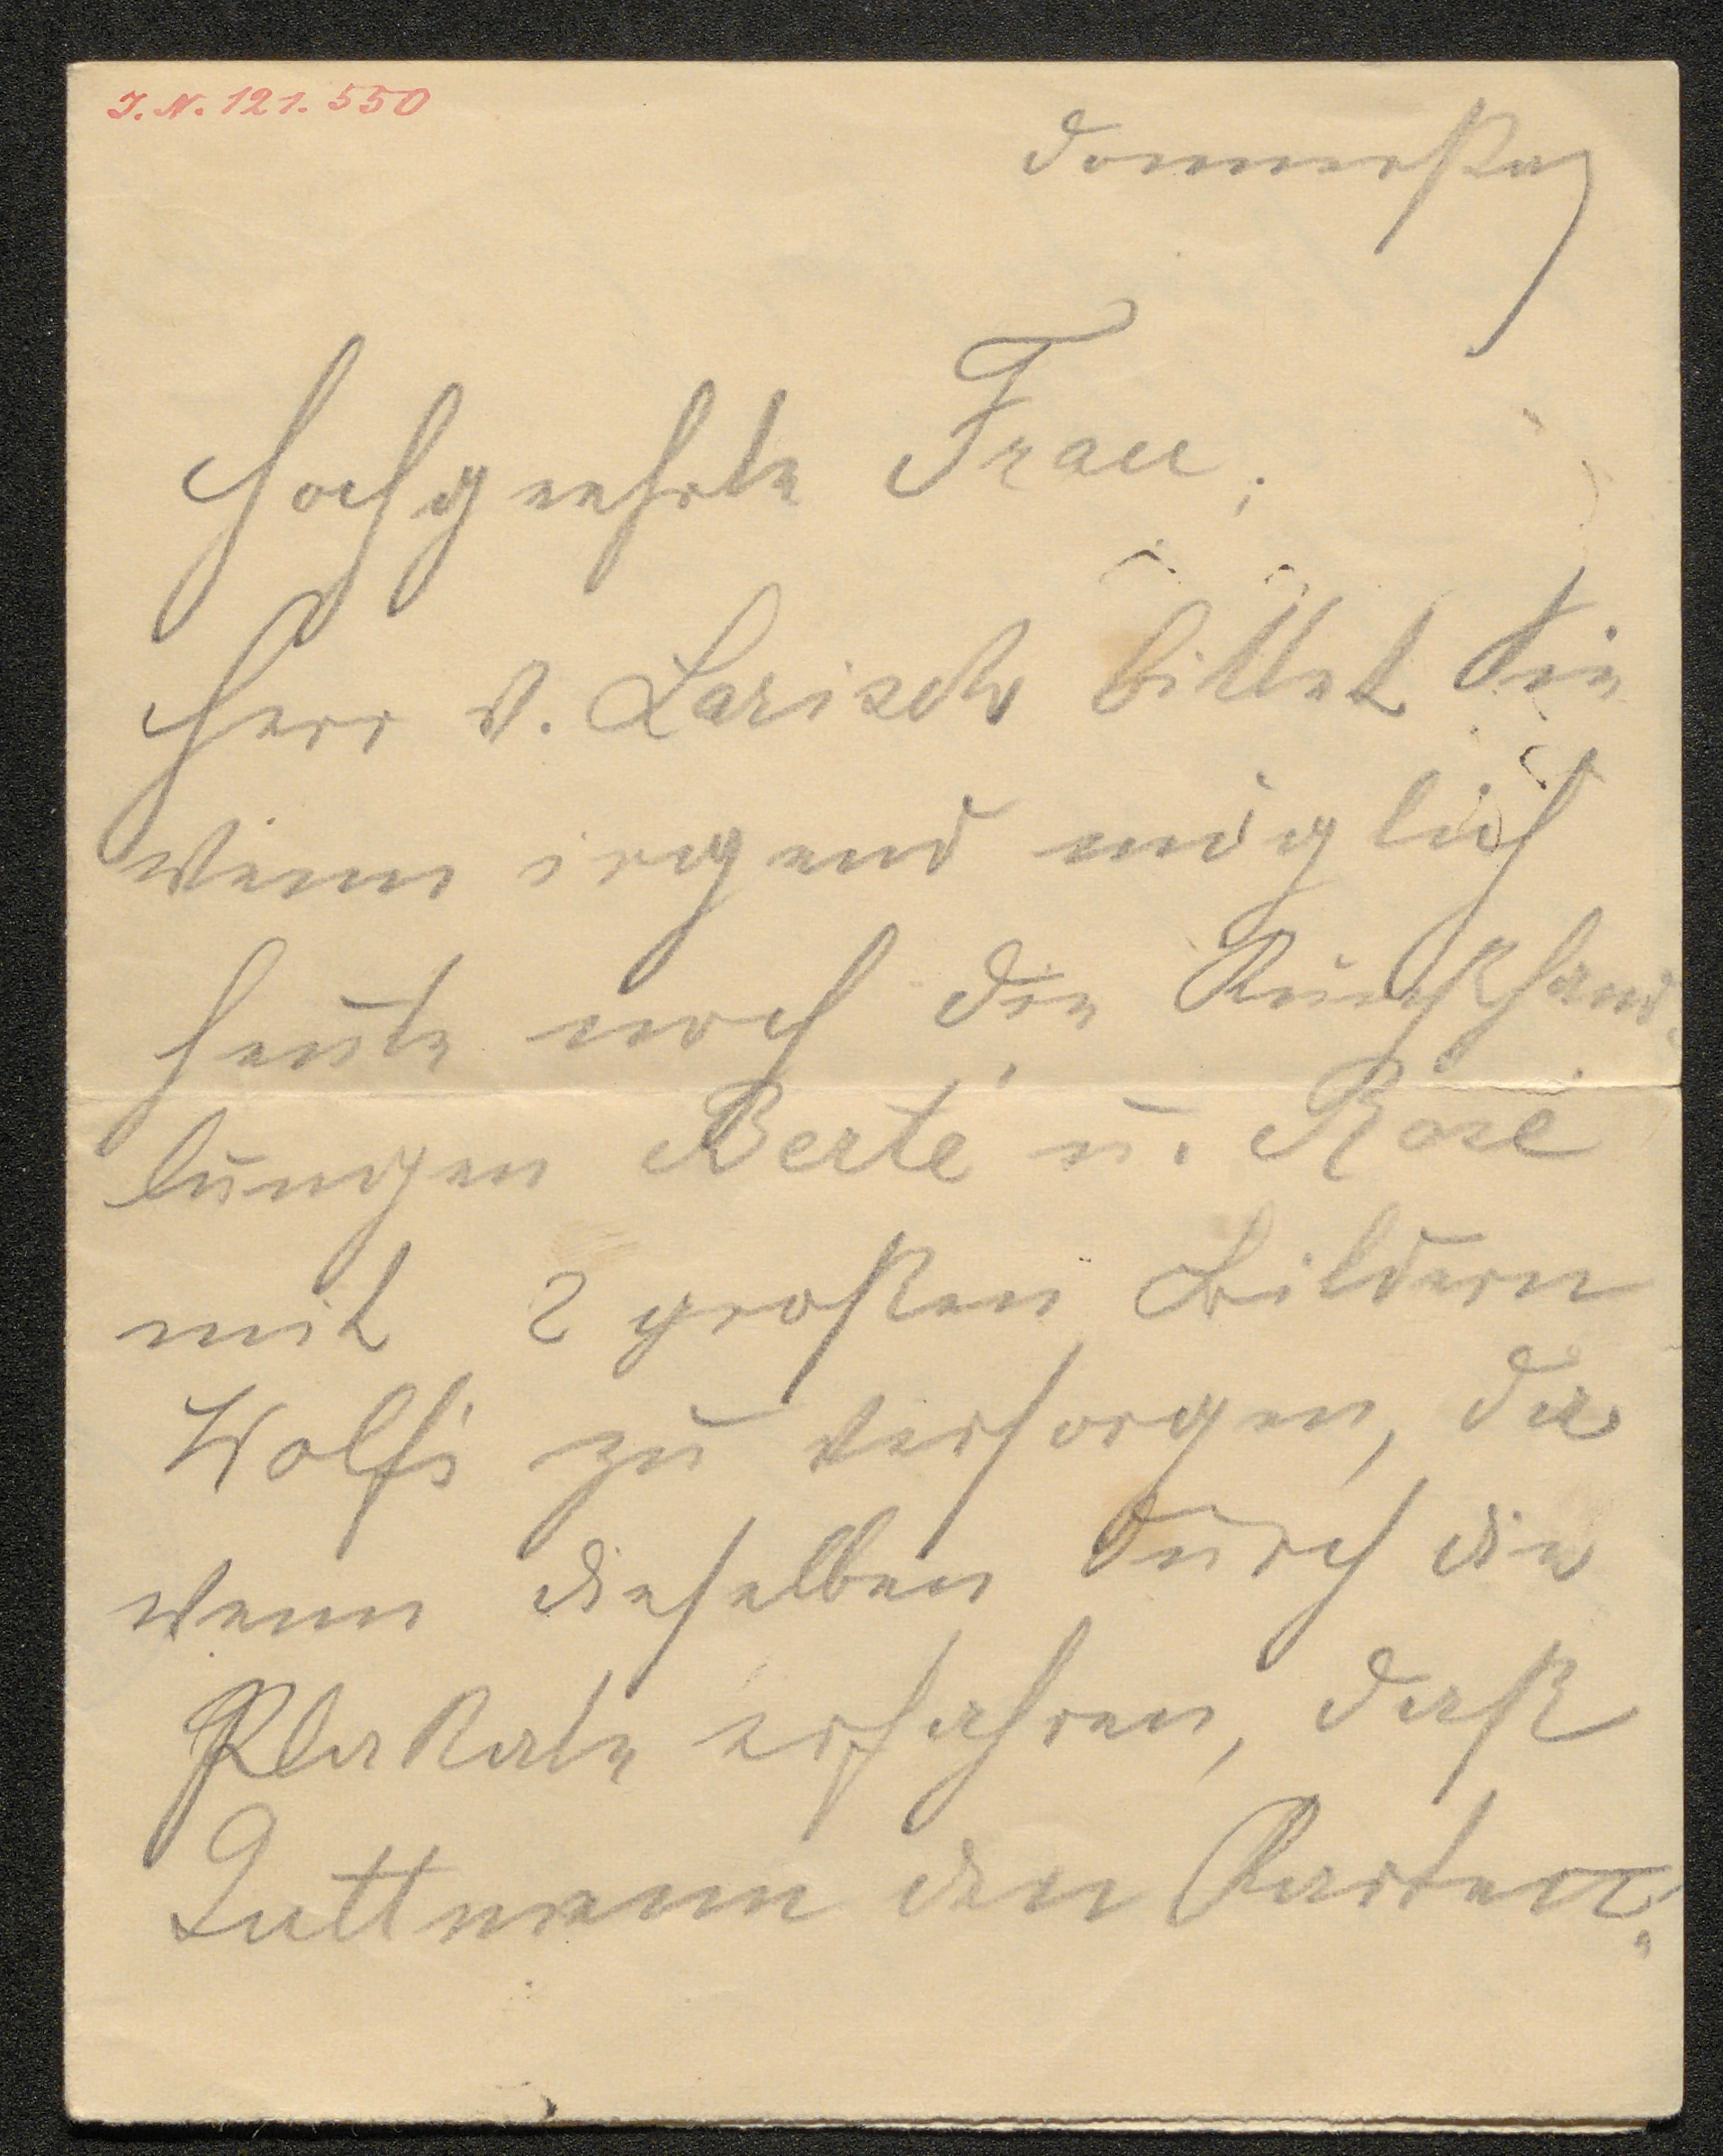 J. N. 121.550
Donnerstag
Hochgeehrte Frau,
Herr v. Larisch bittet Sie
wenn irgend möglich
heute noch die Kunsthand-
lungen Berté u. Rosé
mit 2 großen Bildern
Wolfs zu versorgen, da
wenn dieselben durch die
Plakate erfahren, daß
Guttmann den Karten-